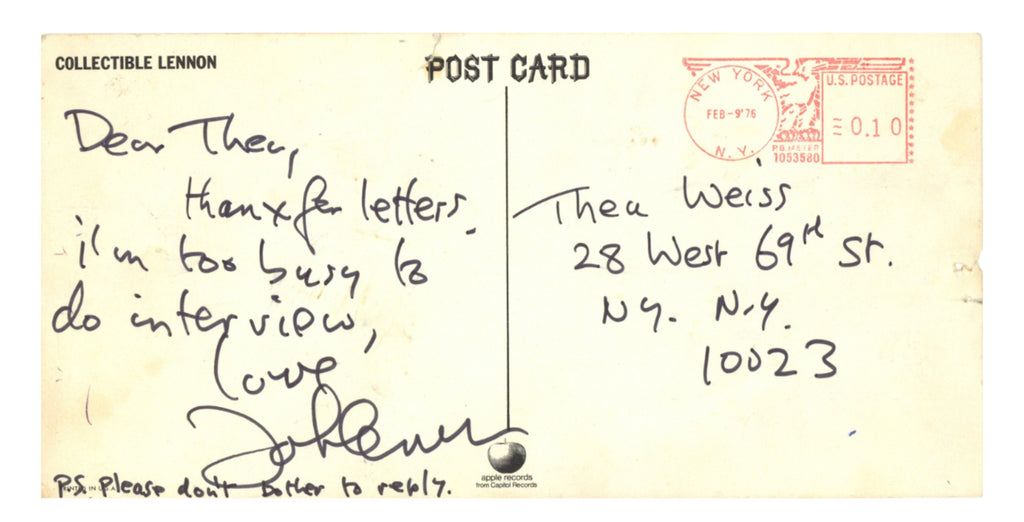 COLLECTIBLE LENNON
POST CARD
NEW YORK
FEB-9'76
N.Y.
U.S. POSTAGE
0.10
P.B. METER
1053580
Dear Thea,
thanx for letters.
i'm too busy to
do interview,
love
John Lennon
P.S. Please don't bother to reply.
Thea Weiss
28 West 69th St.
NY. N.Y.
10023
apple records
from Capitol Records